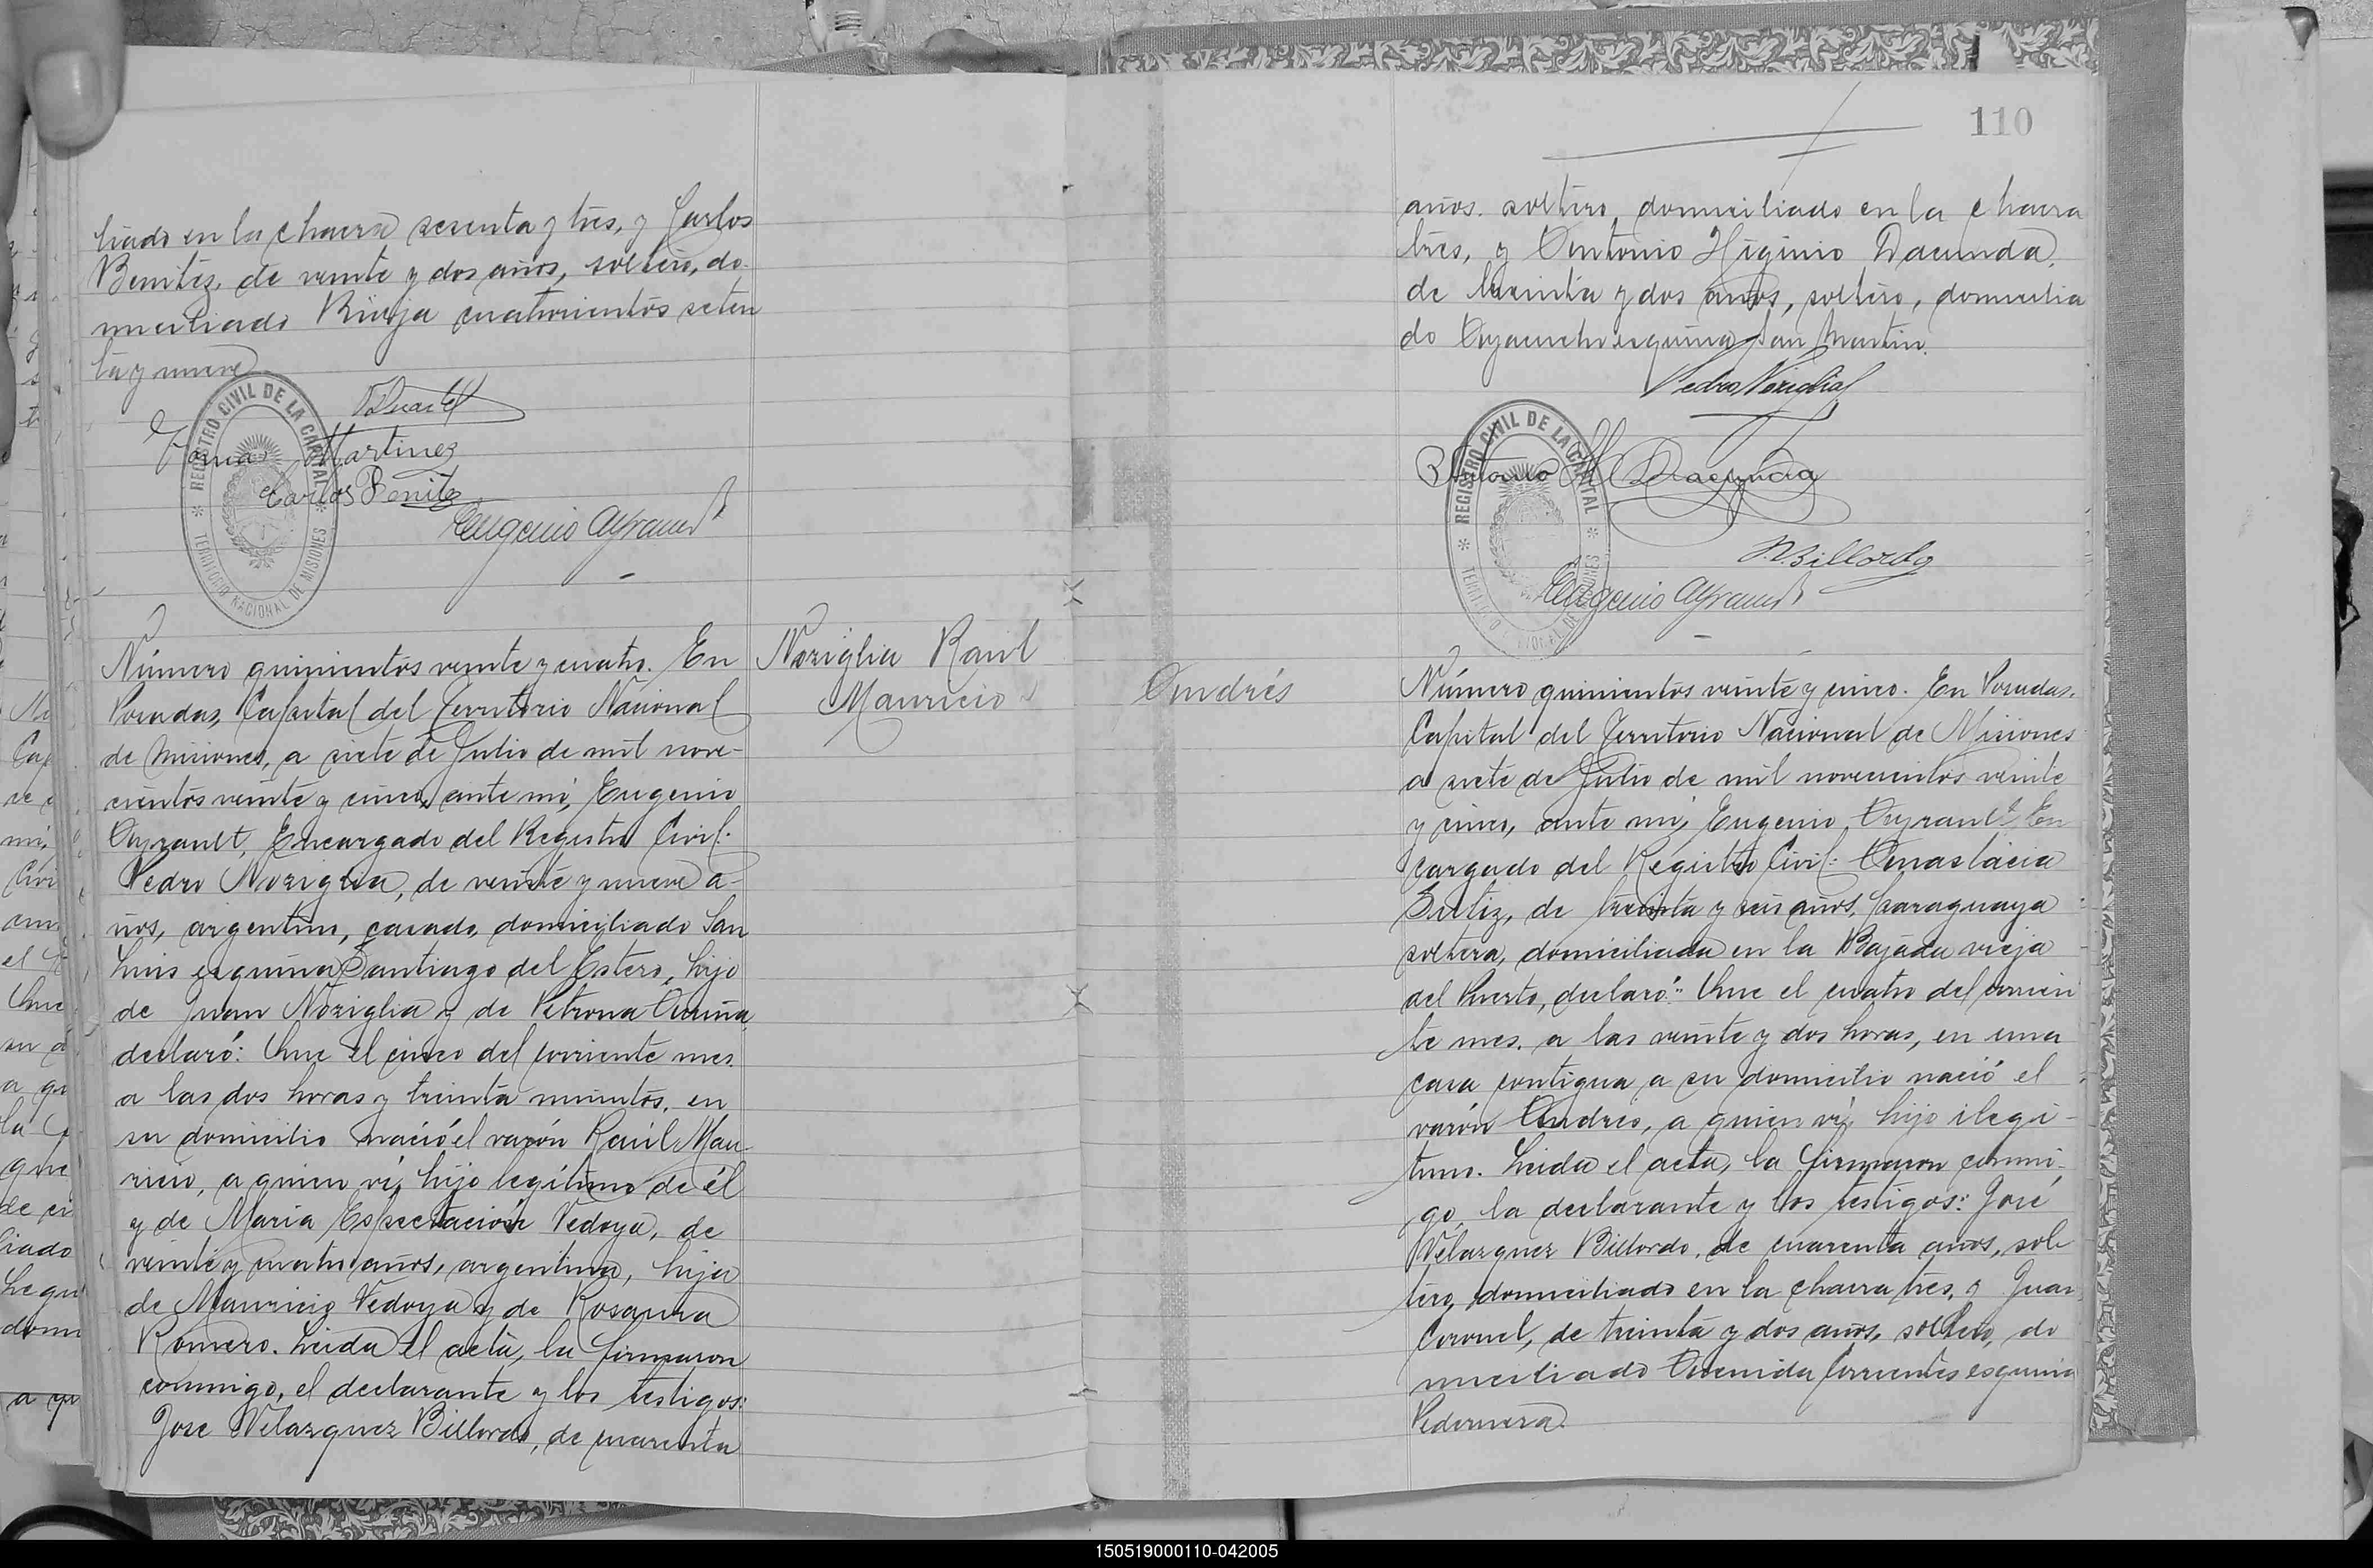 liado en la chacra sesenta y tres, y Carlos
Benitez, de veinte y dos años, soltero, do-
miciliado Rioja cuatrocientos seten
ta y nueve
REGISTRO CIVIL DE LA CAPITAL
TERRITORIO NACIONAL DE MISIONES
Duarte
Tomas Martinez
Carlos Benitez
Eugenio Ayrault
Número quinientos veinte y cuatro. En
Posadas, Capital del Territorio Nacional
de Misiones, a siete de Julio de mil nove-
cientos veinte y cinco, ante mí, Eugenio
Ayrault, Encargado del Registro Civil:
Pedro Noziglia, de veinte y nueve a-
ños, argentino, casado, domiciliado San
Luis esquina Santiago del Estero, hijo
de Juan Noziglia y de Petrona Acuña
declaró: Que el cinco del corriente mes.
a las dos horas y treinta minutos, en
su domicilio nació el varón Raúl Mau-
ricio, a quien ví, hijo legítimo de él
y de Maria Espectación Vedoya, de
veinte y cuatro años, argentina, hija
de Mauricio Vedoya y de Rosaura
Romero. Leida el acta, la firmaron
conmigo, el declarante y los testigos:
José Velazquez Billordo, de cuarenta
Noziglia Raúl
Mauricio
110
años. soltero, domiciliado en la chacra
tres, y Antonio Higinio Dacunda,
de treinta y dos años, soltero, domicilia
do Ayacucho esquina San Martin.
Pedro Noziglia
Antonio H Dacunda
REGISTRO CIVIL DE LA CAPITAL
Billordo
Eugenio Ayrault
Andrés
Número quinientos veinte y cinco. En Posadas,
Capital del Territorio Nacional de Misiones
a siete de Julio de mil novecientos veinte
y cinco, ante mí, Eugenio Ayrault, En
cargado del Registro Civil: Anastácia
de treinta y seis años, paraguaya
soltera, domiciliada en la Bajada vieja
del Puerto, declaró: Que el cuatro del corrien
te mes. a las veinte y dos horas, en una
casa contigua a su domicilio nació el
varón Andrés, a quien ví, hijo ilegí-
timo. Leida el acta, la firmaron conmi-
go, la declarante y los testigos: José
Velazquez Billordo, de cuarenta años, sol-
tero, domiciliado en la chacra tres, y Juan
Coronel, de treinta y dos años, soltero, do
miciliado Avenida Corrientes esquina
Pedernera.
150519000110-042005